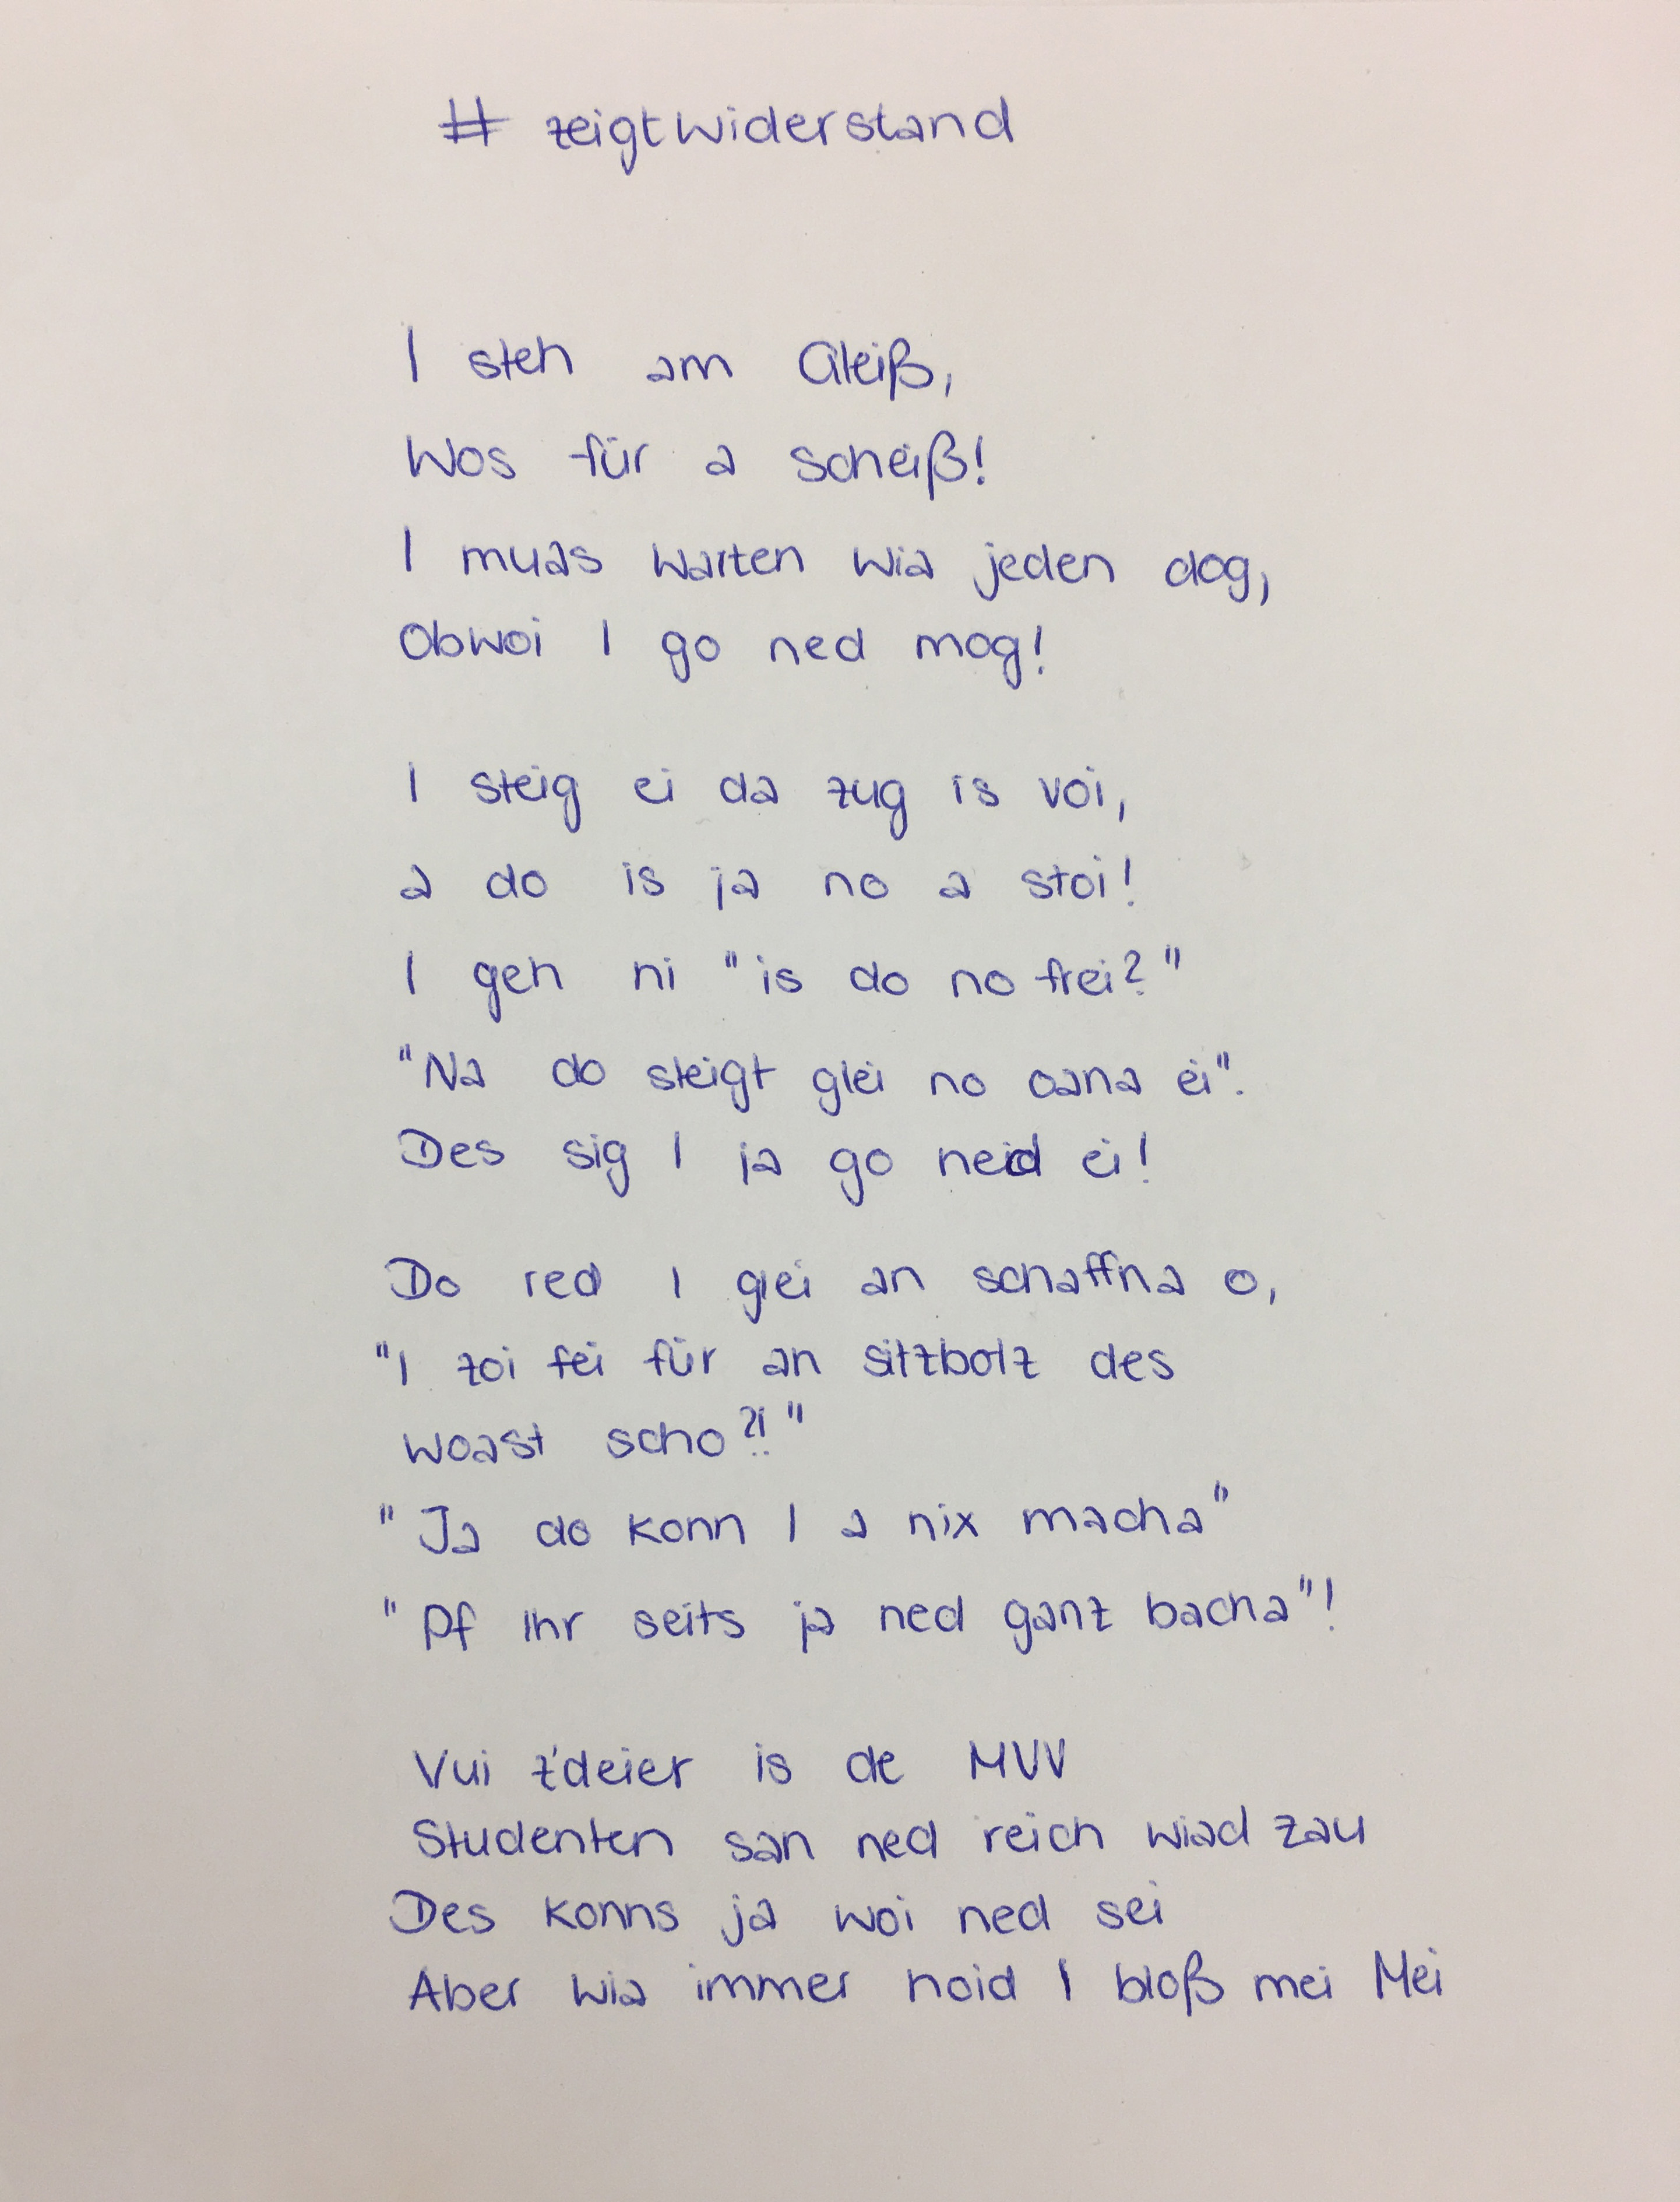 # zeigtwiderstand
I steh am Gleiß,
Wos für a scheiß!
I muas warten wia jeden dog,
Obwoi I go ned mog!
I steig ei da zug is voi,
a do is ja no a stoi!
I geh ni "is do no frei?"
"Na do steigt glei no oana ei".
Des sig I ja go neid ei!
Do red I glei an schaffna o,
"I zoi fei für an sitzbolz des
woast scho?!"
"Ja do konn I a nix macha"
"Pf Ihr seits ja ned ganz bacha"!
Vui z'deier is de MVV
Studenten san ned reich wiad zau
Des konns ja woi ned sei
Aber wia immer hoid I bloß mei Mei